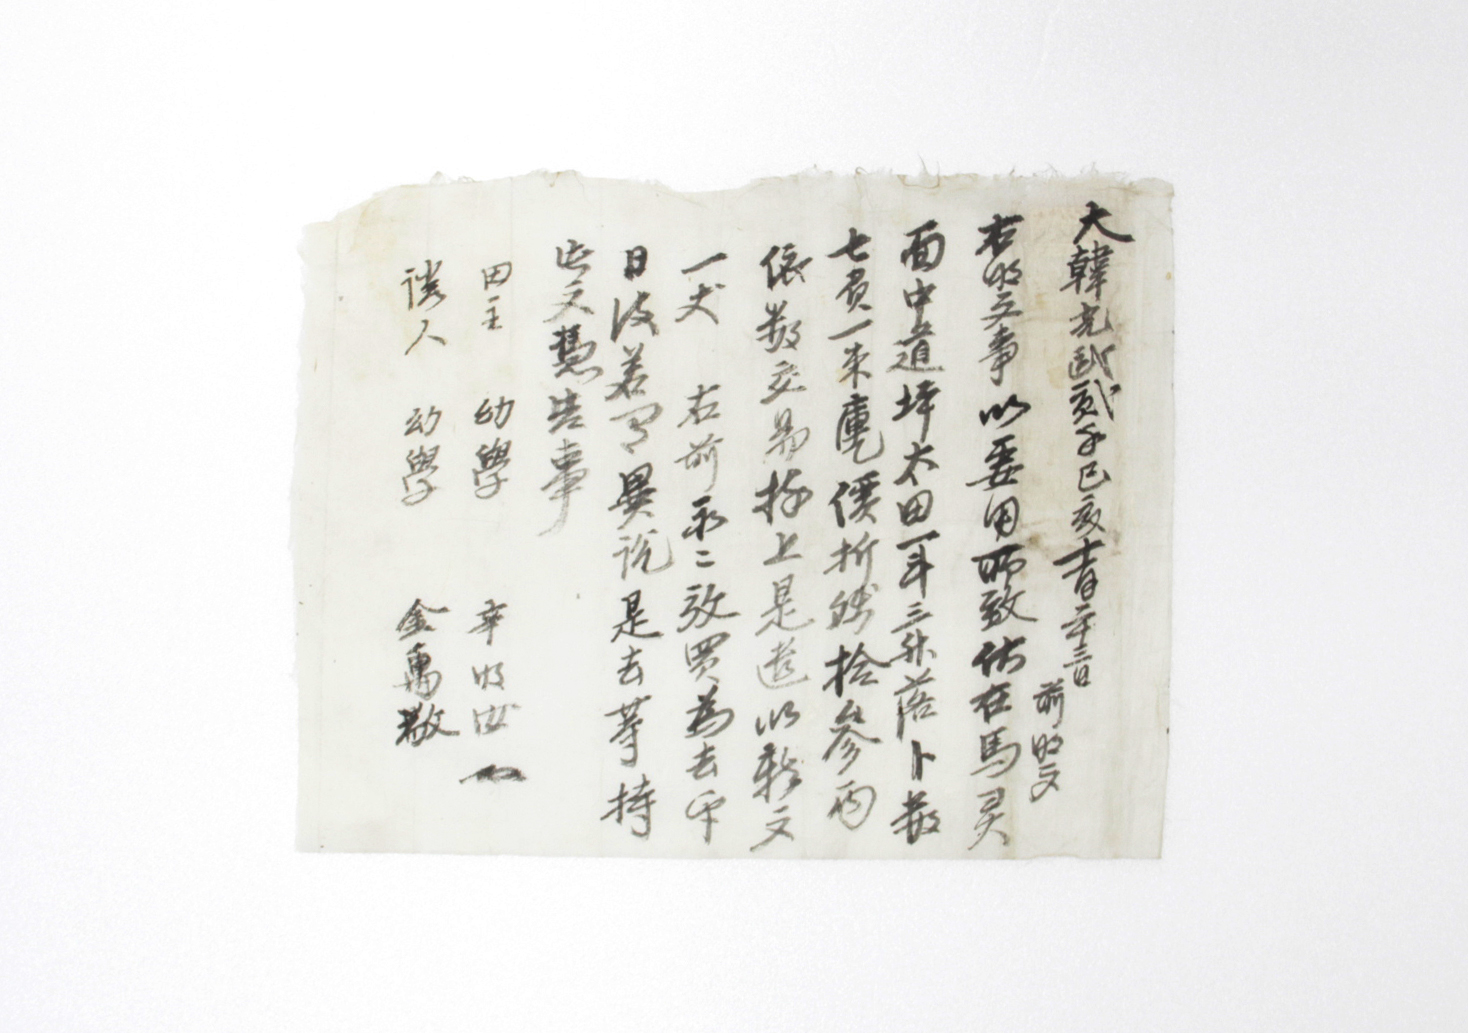 大韓光武貳年己亥十二月二十三日
前明文
右明文事以要用所致伏在馬灵
面中道坪太田一斗三升落卜數
七負一束㐣價折錢拾參兩
依數交易捧上是遣以新文
一丈 右前永永放買爲去乎
日後若有異說是去等持
此文憑告事
田主 幼學 辛
人 幼學 金萬敬